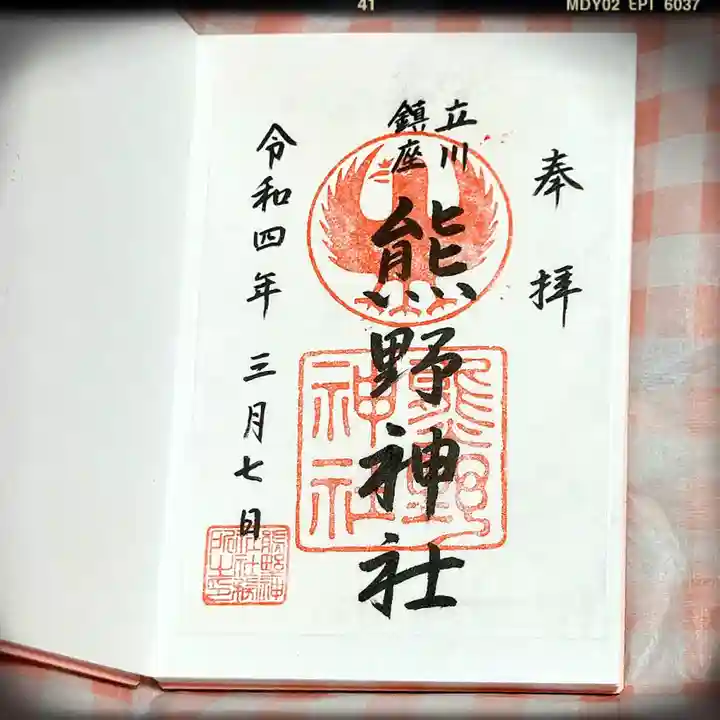 41
MDY02 EPI 6037
奉拝
立川
鎮座
熊野神社
熊野
神社
令和四年三月七日
熊野神
社社務
所之印